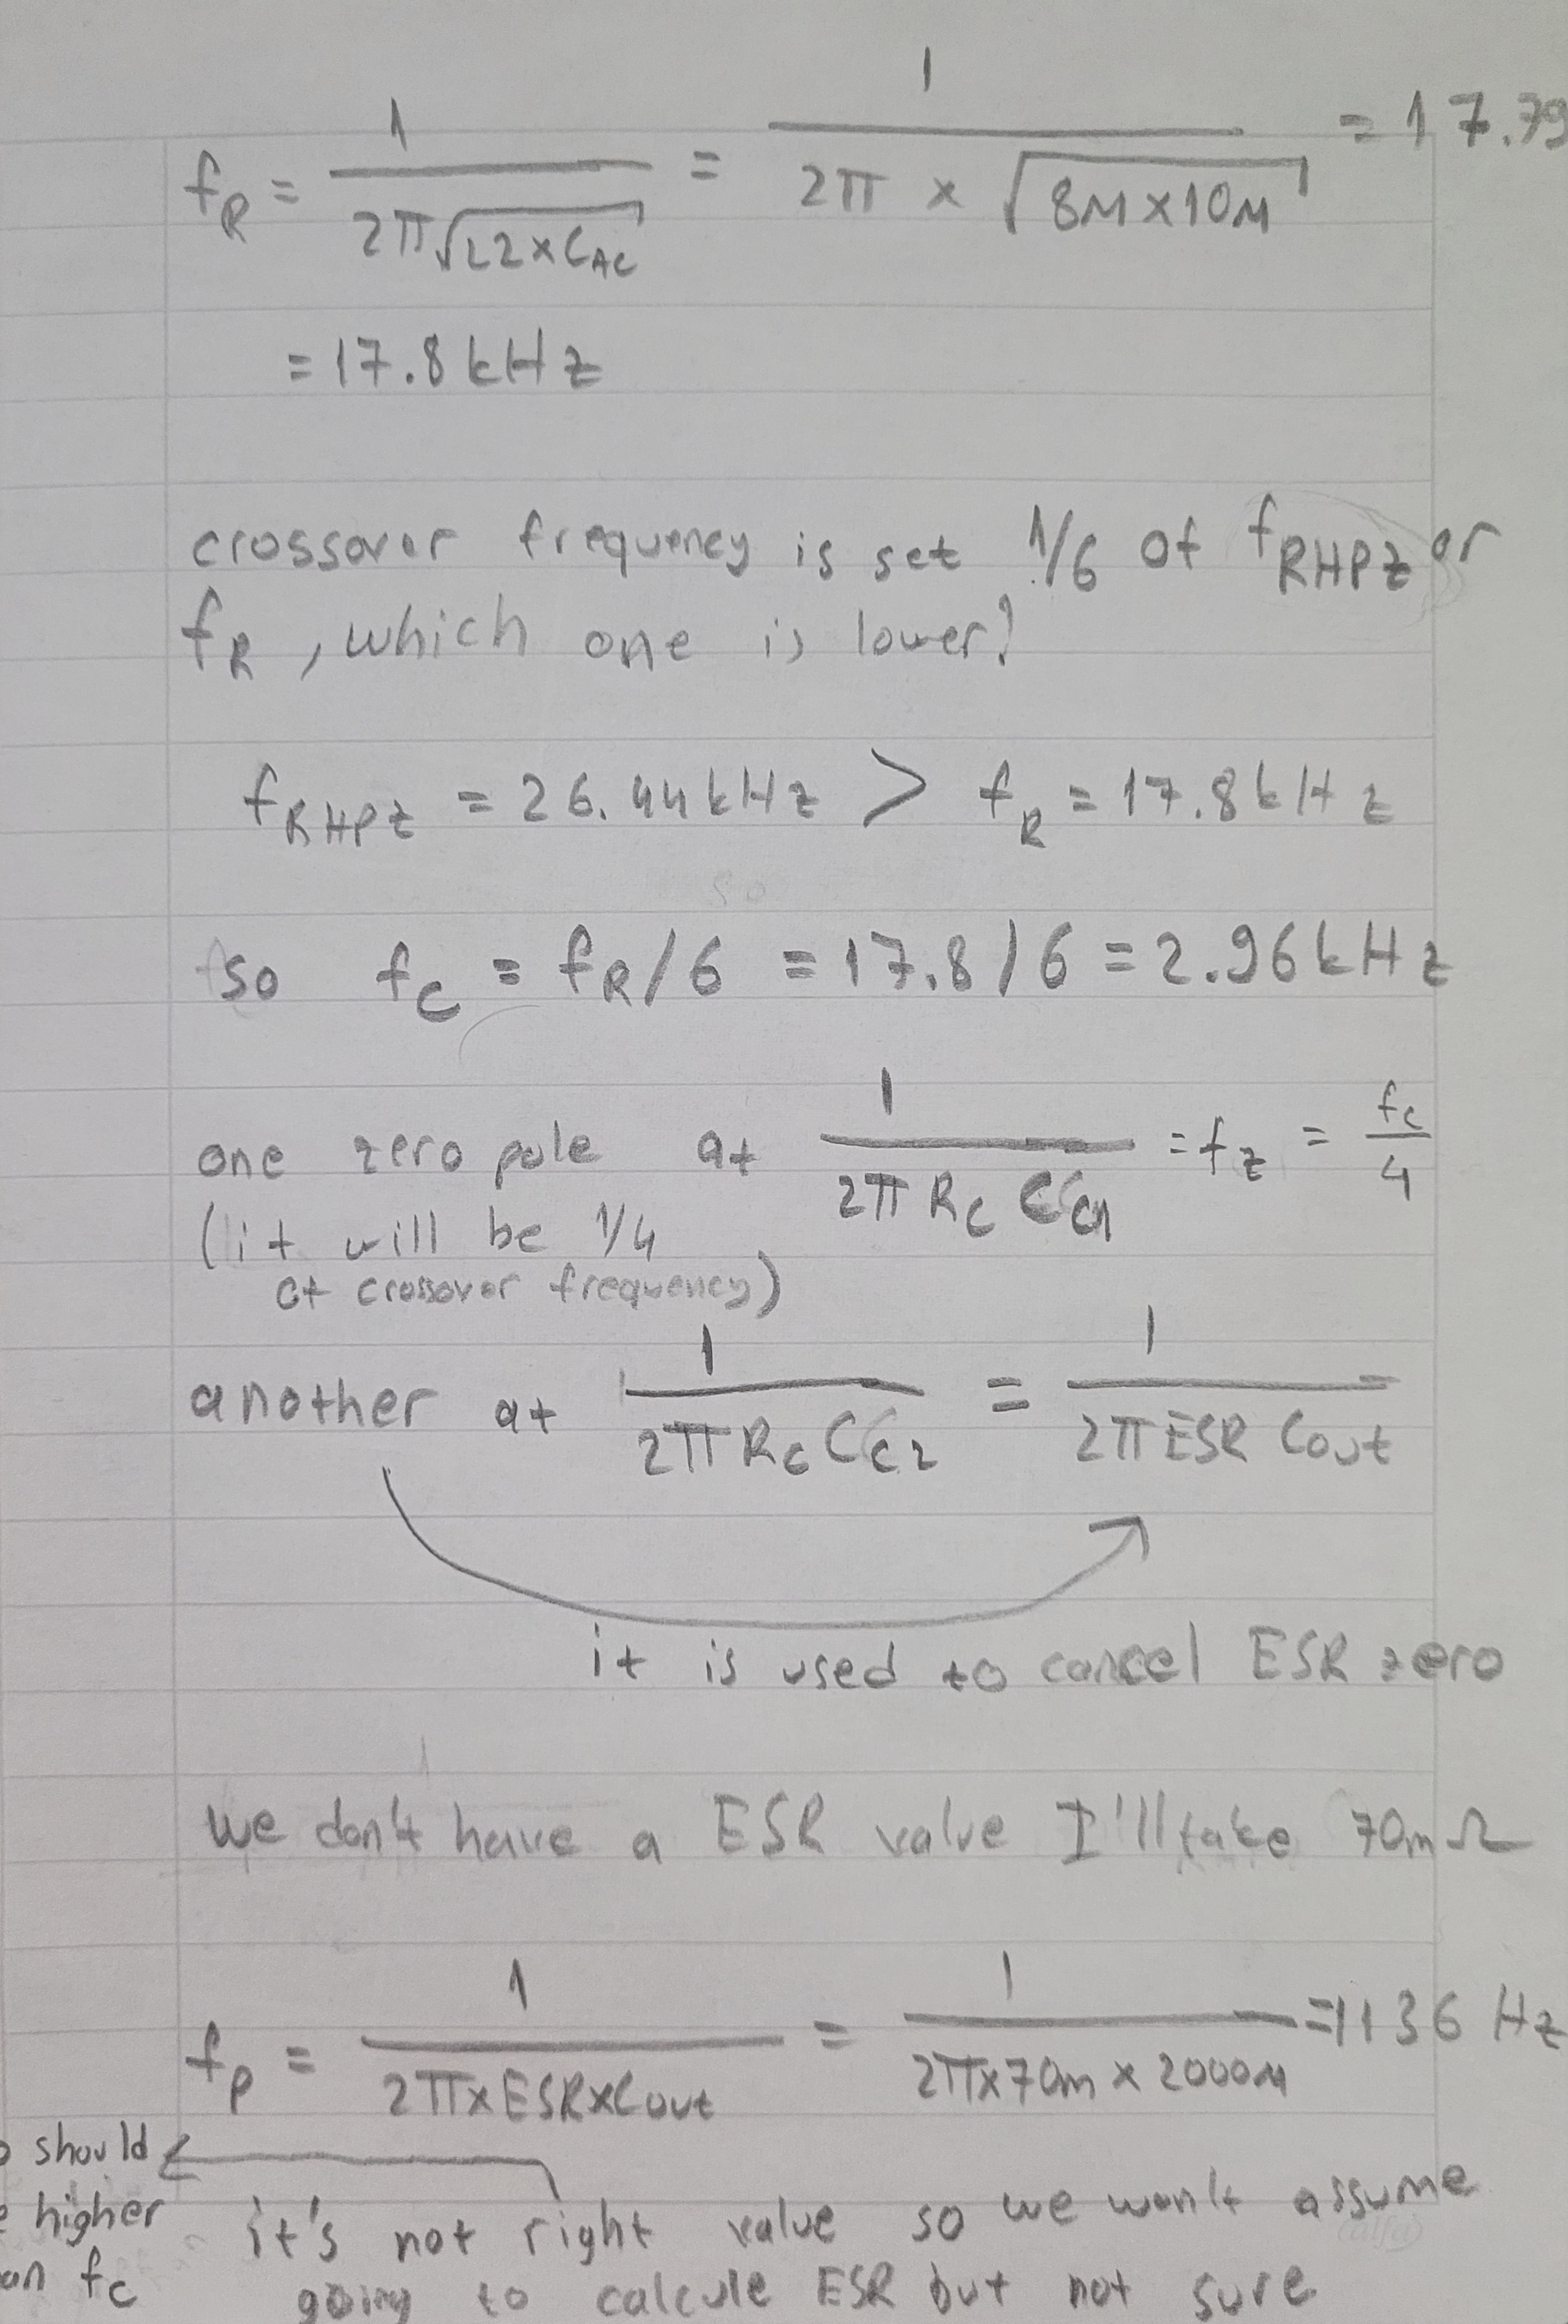 f_R = 1 / 2π√(L2 × C_AC) = 1 / 2π × √(8μ × 10μ) = 17.79
= 17.8 kHz
crossover frequency is set 1/6 of f_RHPZ or
f_R, which one is lower?
f_RHPZ = 26.44 kHz > f_R = 17.8 kHz
so f_C = f_R / 6 = 17.8 / 6 = 2.96 kHz
one zero pole at 1 / 2π R_C C_C1 = f_z = f_c / 4
(it will be 1/4
of crossover frequency)
another at 1 / 2π R_C C_C2 = 1 / 2π ESR Cout
it is used to cancel ESR zero
we don't have a ESR value I'll take 70mΩ
f_p = 1 / 2π×ESR×Cout = 1 / 2π×70m × 2000μ = 1136 Hz
should
higher
f_c
it's not right value so we won't assume
going to calcule ESR but not sure